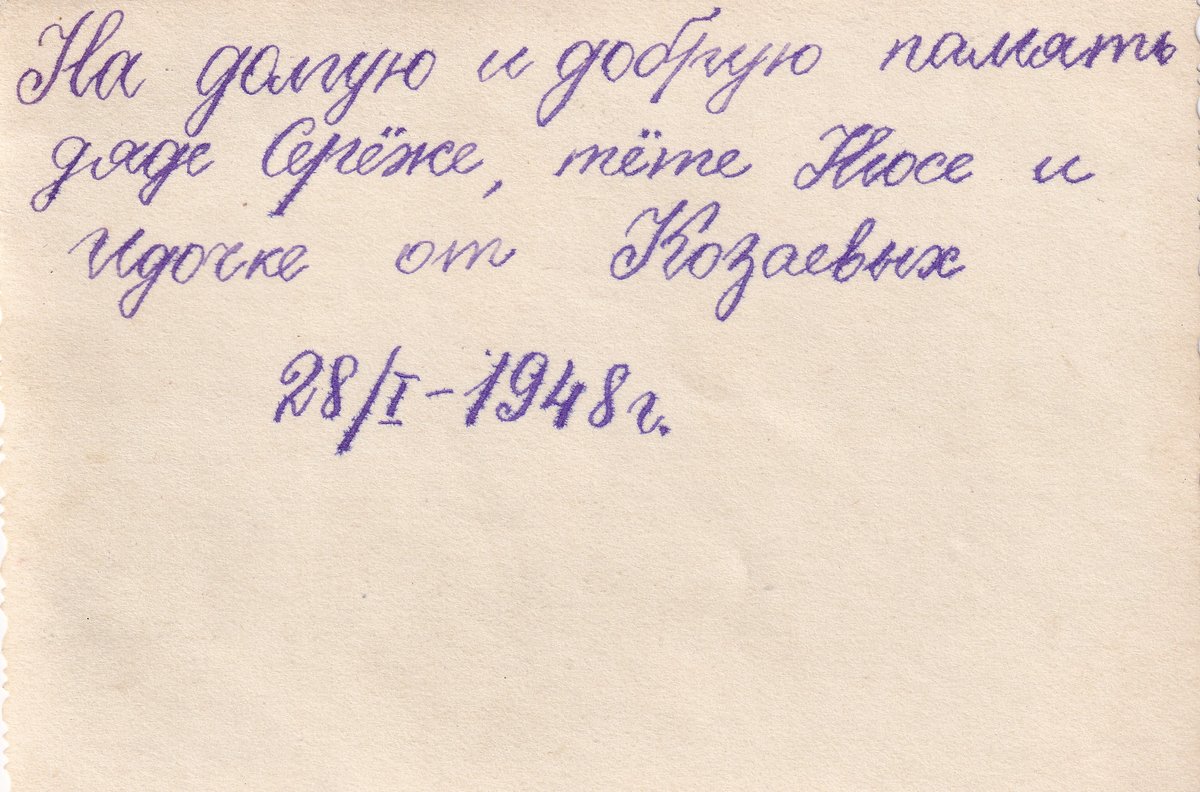 На долгую и добрую память
дяде Серёже, тёте Нюсе и
Идочке от Козаевых
28/I – 1948 г.